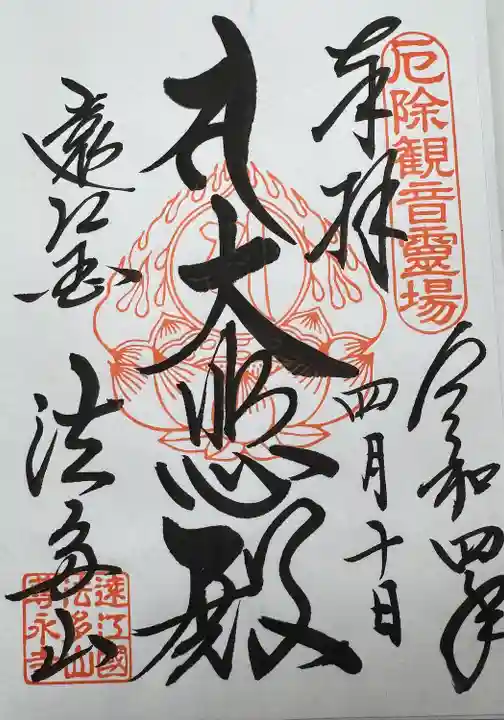 厄除観音靈場
令和四年
奉拝
四月十日
大悲殿
遠江国 法多山
遠江國
法多山
尊永寺